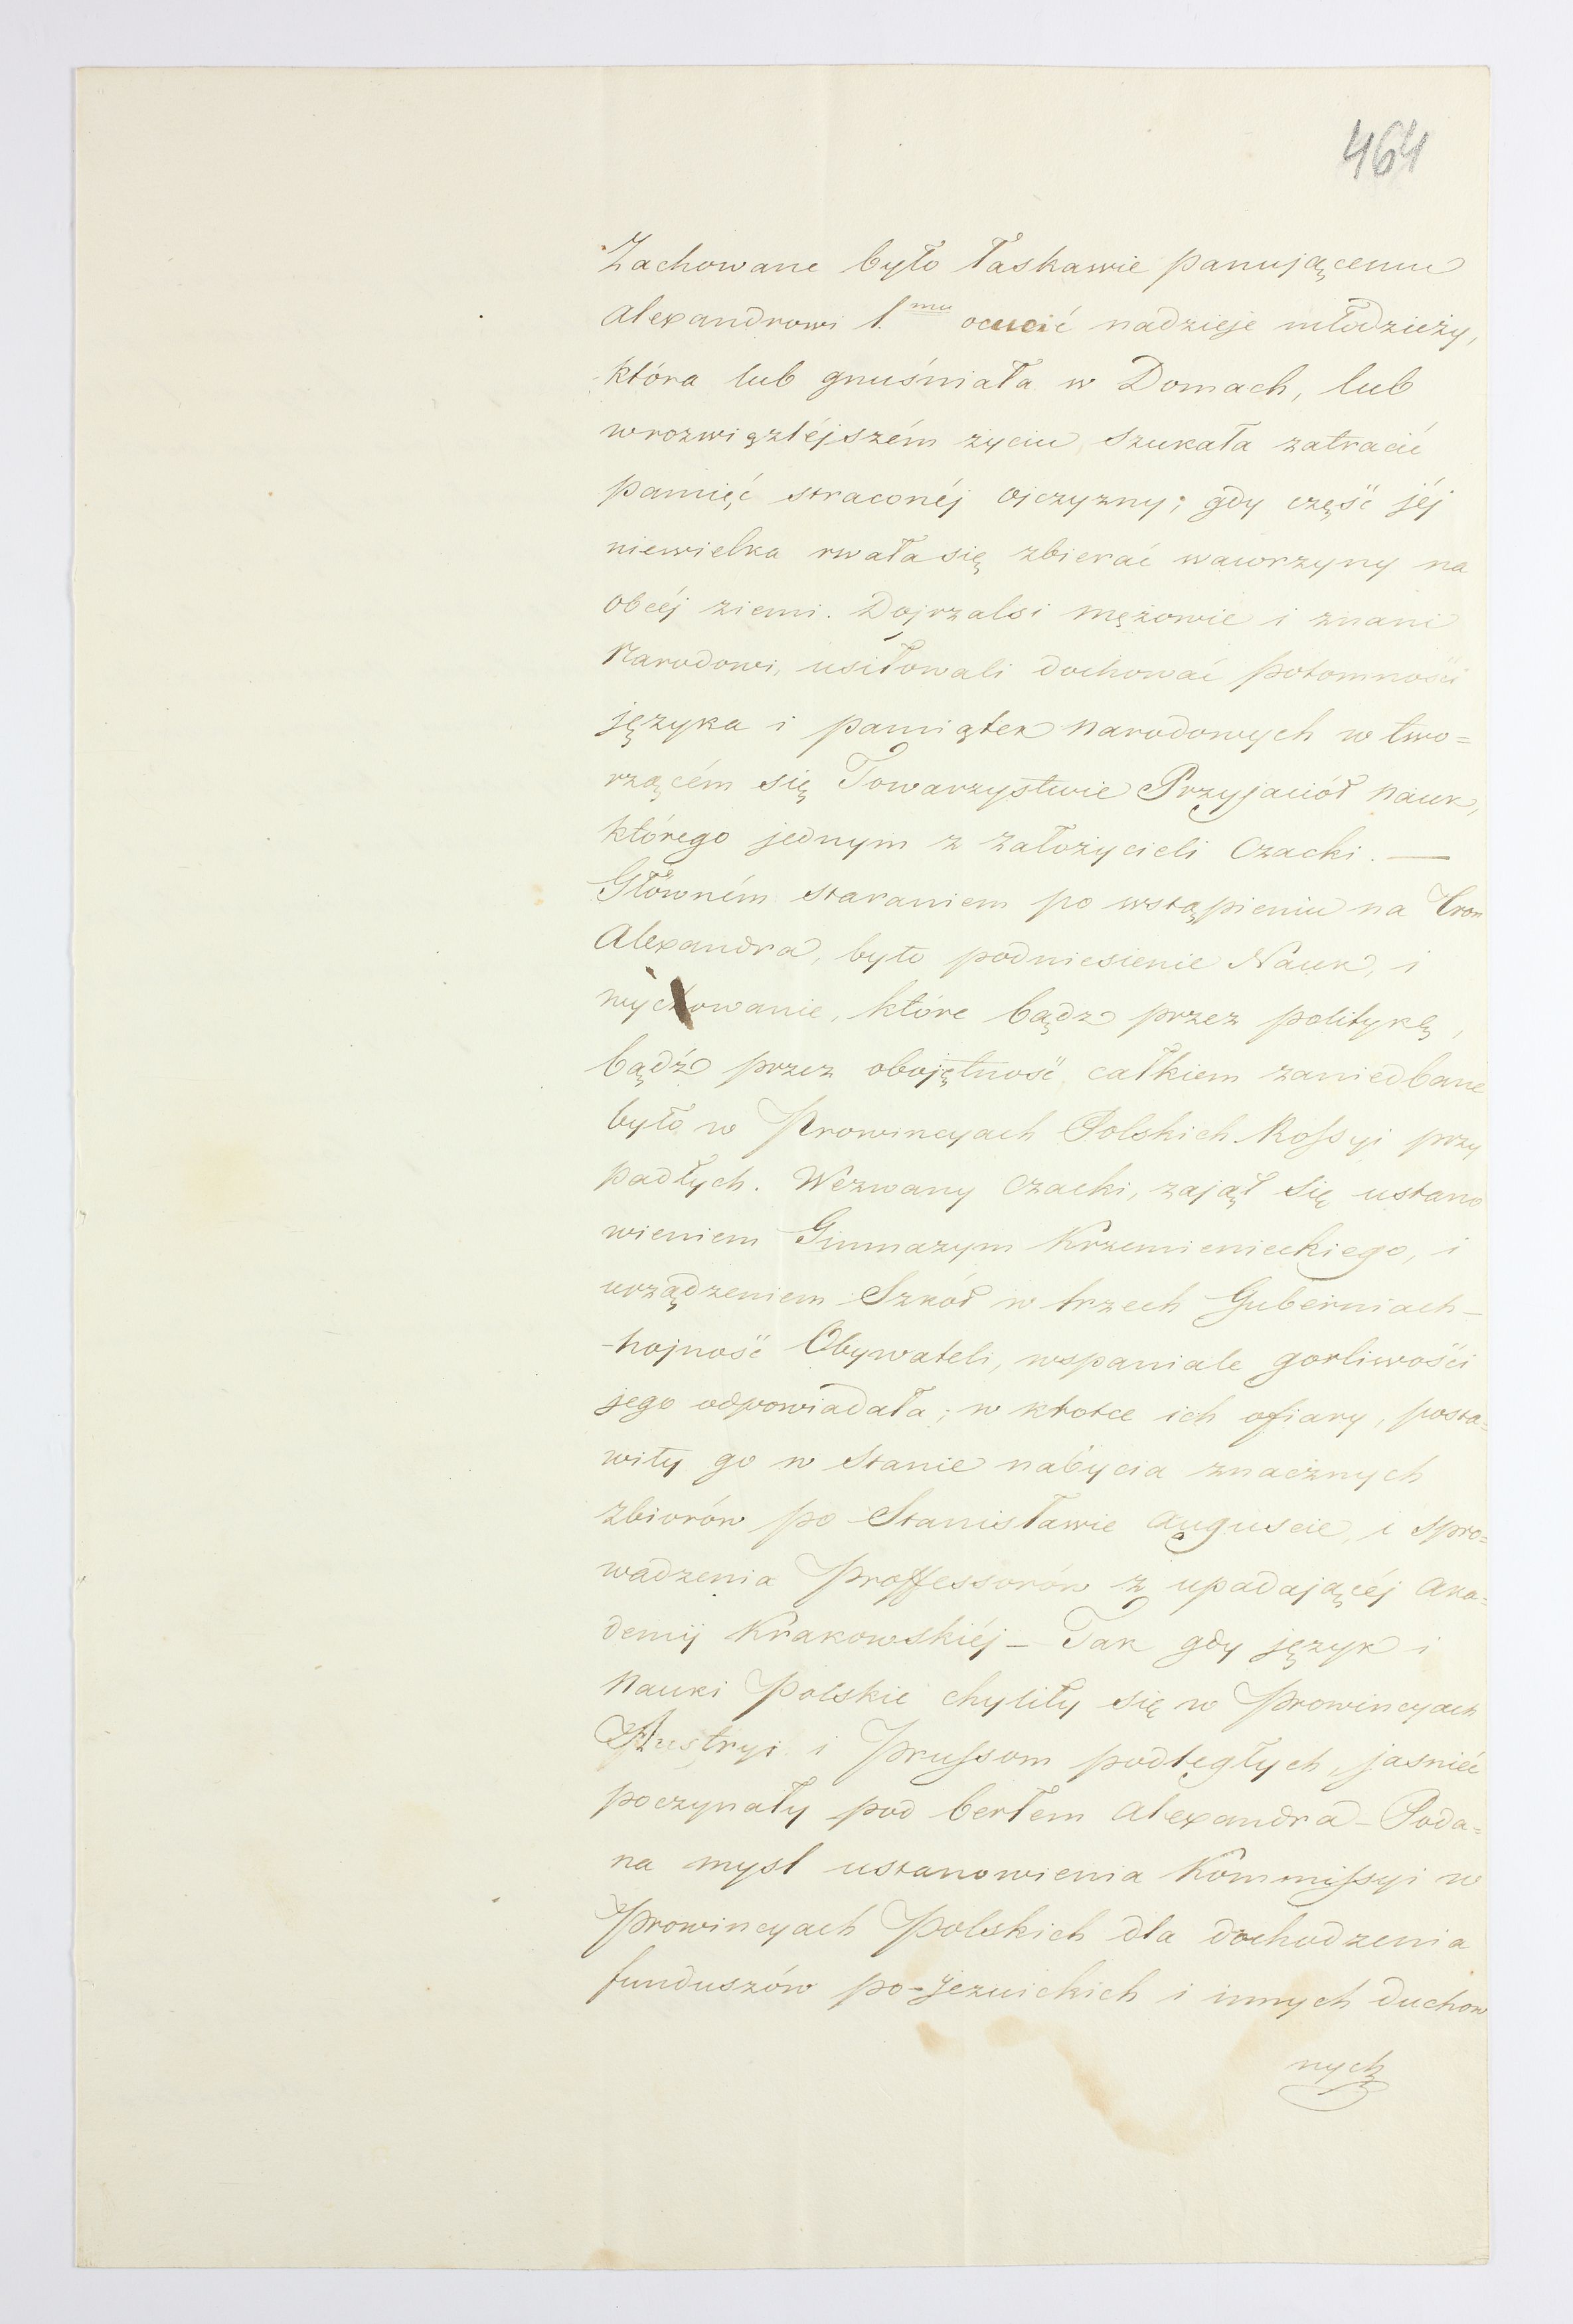 464
Zachowane było łaskawie panującemu
Alexandrowi 1.mu ocucić nadzieje młodzieży,
która lub gnuśniała w Domach, lub
wrozwiązléjszém życiu, szukała zatracić
pamięć straconéj ojczyzny; gdy część jéj
niewielka rwała się zbierać wawrzyny na
obcéj ziemi. Dojrzalsi mężowie i znani
Narodowi, usiłowali dochować potomności
języka i pamiątek Narodowych w two=
rzącém się Towarzystwie Przyjaciół Nauk,
którego jednym z założycieli Czacki. —
Główném staraniem po wstąpieniu na Tron
Alexandra, było podniesienie Nauk, i
wychowanie, które bądz przez politykę,
bądź przez obojętność całkiem zaniedbane
było w Prowincyach Polskich Rossyi przy
padłych. Wezwany Czacki, zajął się ustano
wieniem Gimnazym Krzemienieckiego, i
urządzeniem Szkół w trzech Guberniach –
– hojność Obywateli, wspaniale gorliwości
jego odpowiadała; w krotce ich ofiary, posta=
wiły go w stanie nabycia znacznych
zbiorów po Stanisławie Auguscie, i spro=
wadzenia Proffessorów z upadającéj Aka=
demij Krakowskiéj – Tak gdy język i
Nauki Polskie chyliły się w Prowincyach
Austryi i Prussom podległych, jasnieć
poczynały pod berłem Alexandra – Poda=
na mysl ustanowienia Kommissyi w
Prowincyach Polskich dla dochodzenia
funduszów po-Jezuickich i innych duchow
nych